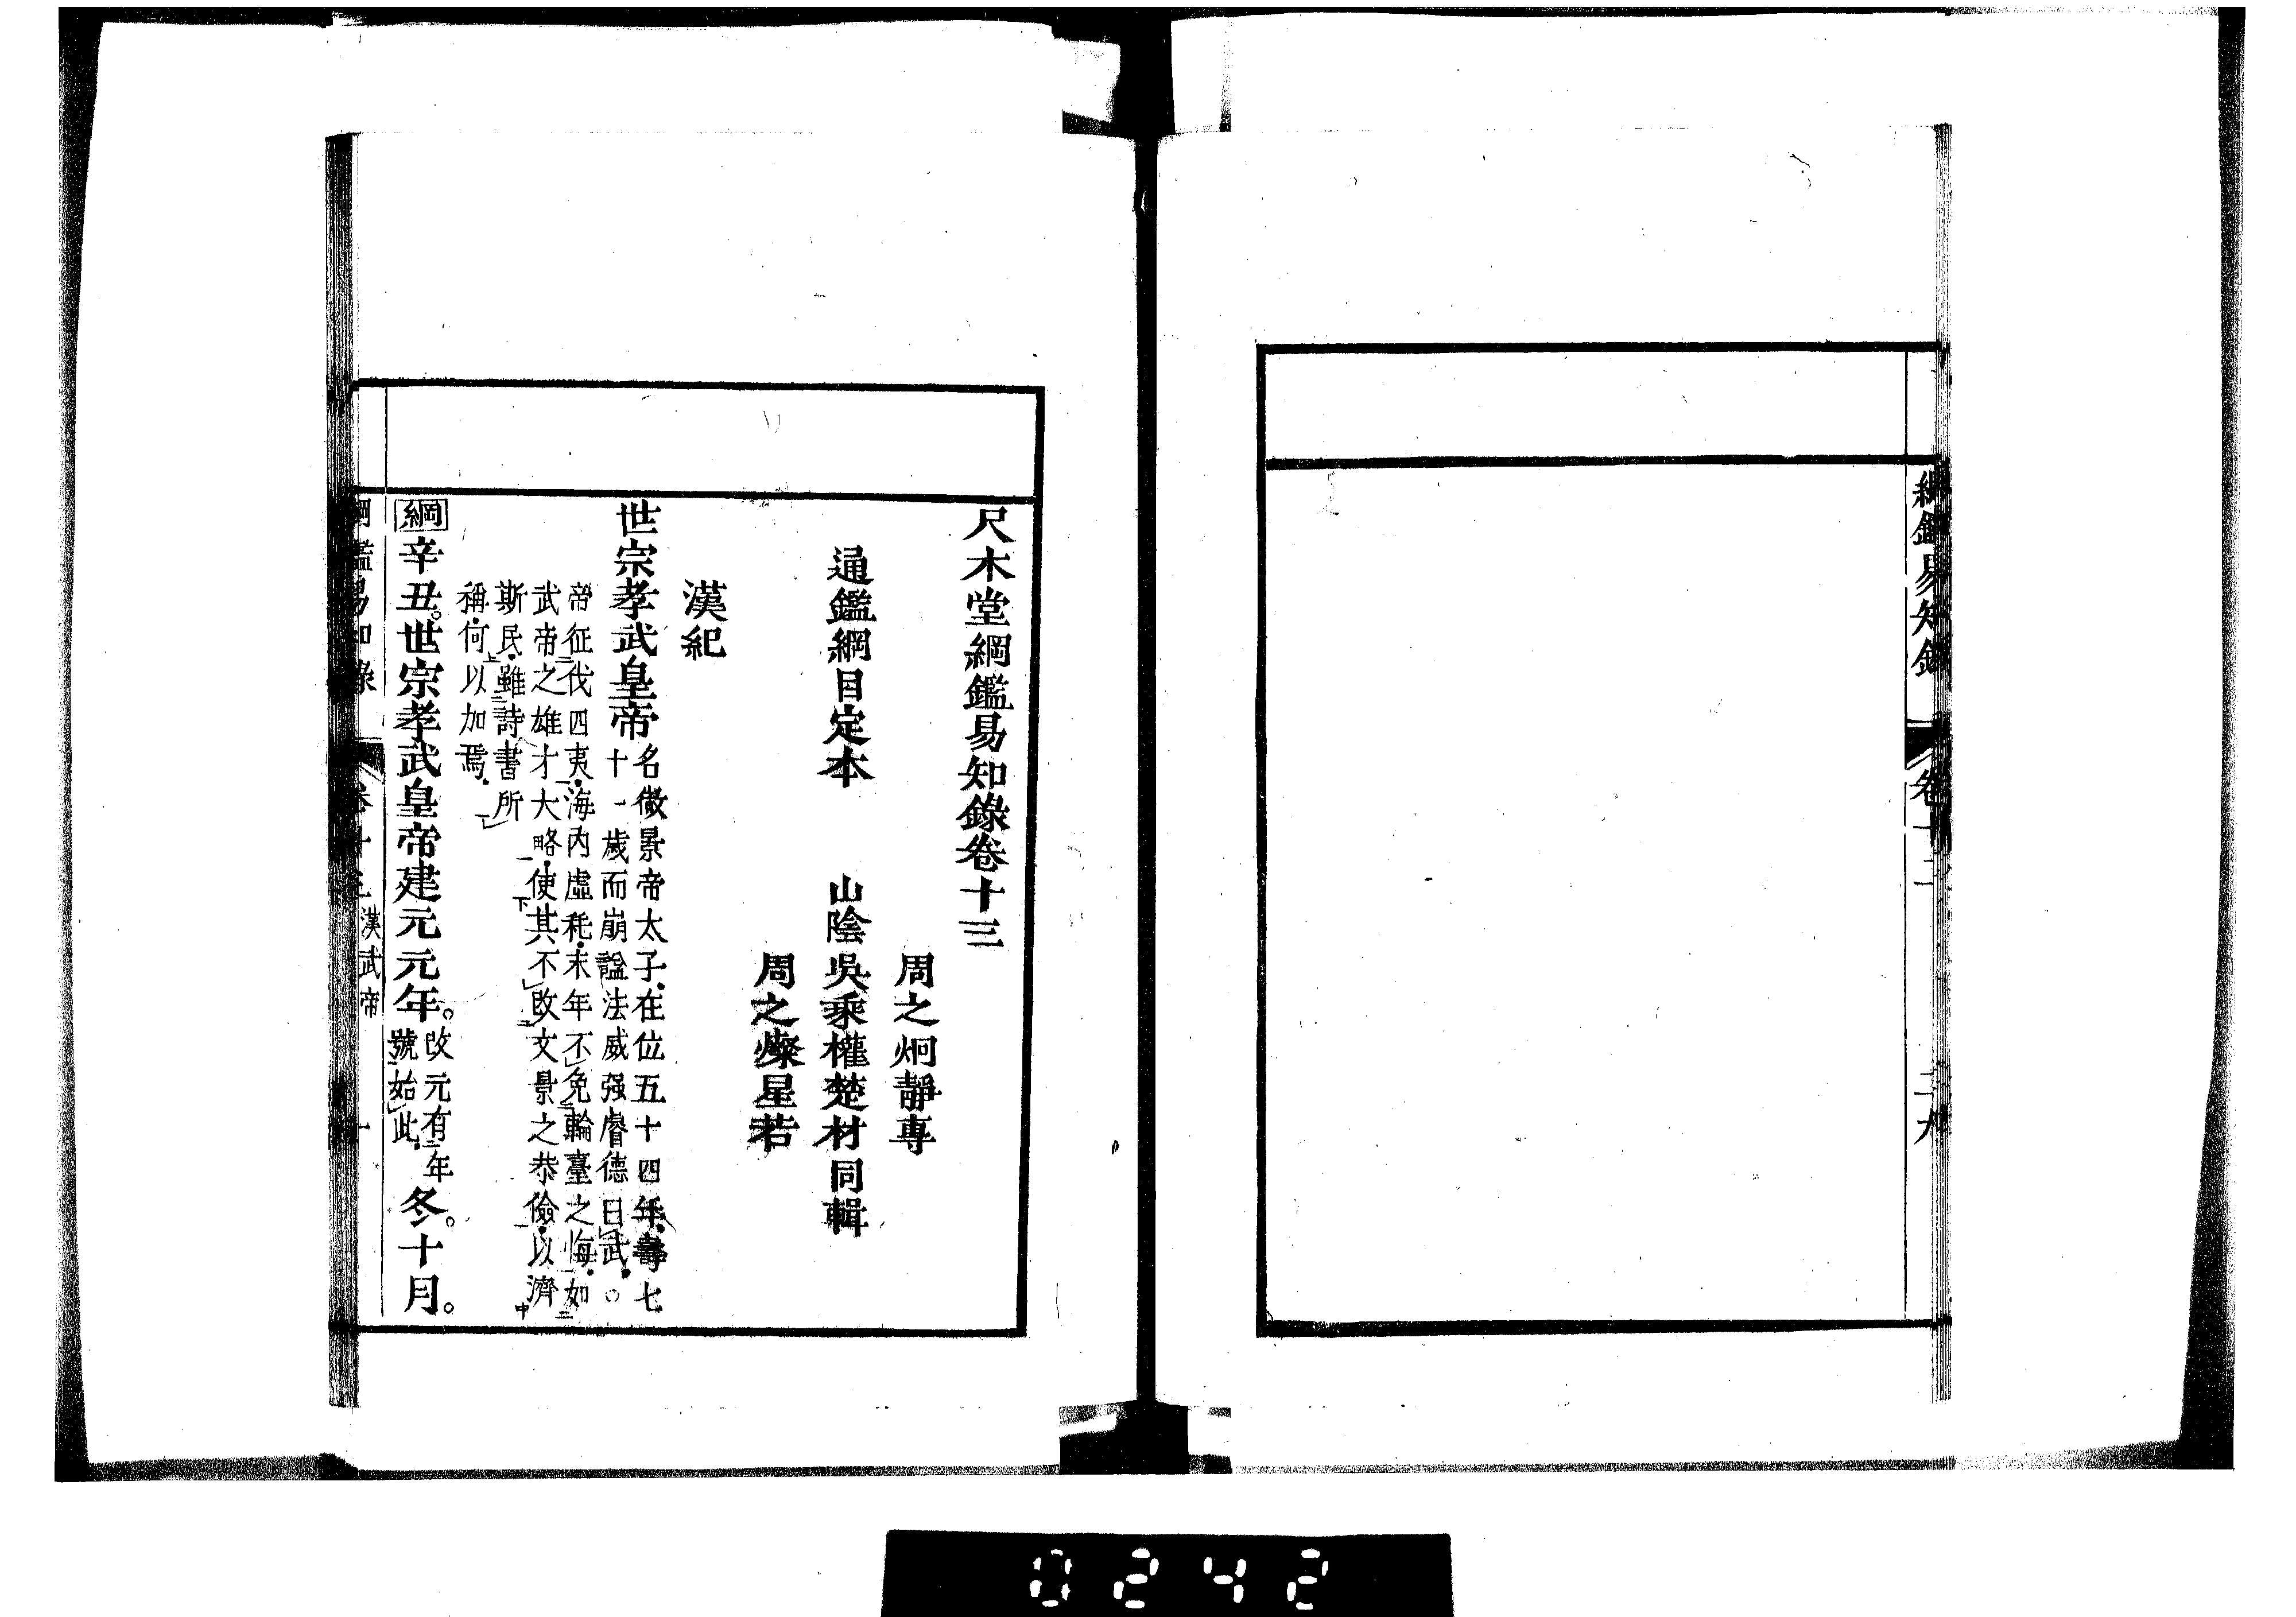 綱鑑易知錄 卷十二 二九
尺木堂綱鑑易知錄卷十三
周之炯靜專
通鑑綱目定本 山陰吳乘權楚材同輯
周之燦星若
漢紀
世宗孝武皇帝 名徹景帝太子在位五十四年壽七
十一歲而崩諡法威强睿德曰武○
帝征伐四夷海内虛耗末年不免輪臺之悔如
武帝之雄才大略使其不改文景之恭儉以濟
斯民雖詩書所
稱何以加焉
綱辛丑。世宗孝武皇帝建元元年。 改元有年
號始此 冬。十月。
綱鑑易知錄 卷十三 漢武帝 一
0242